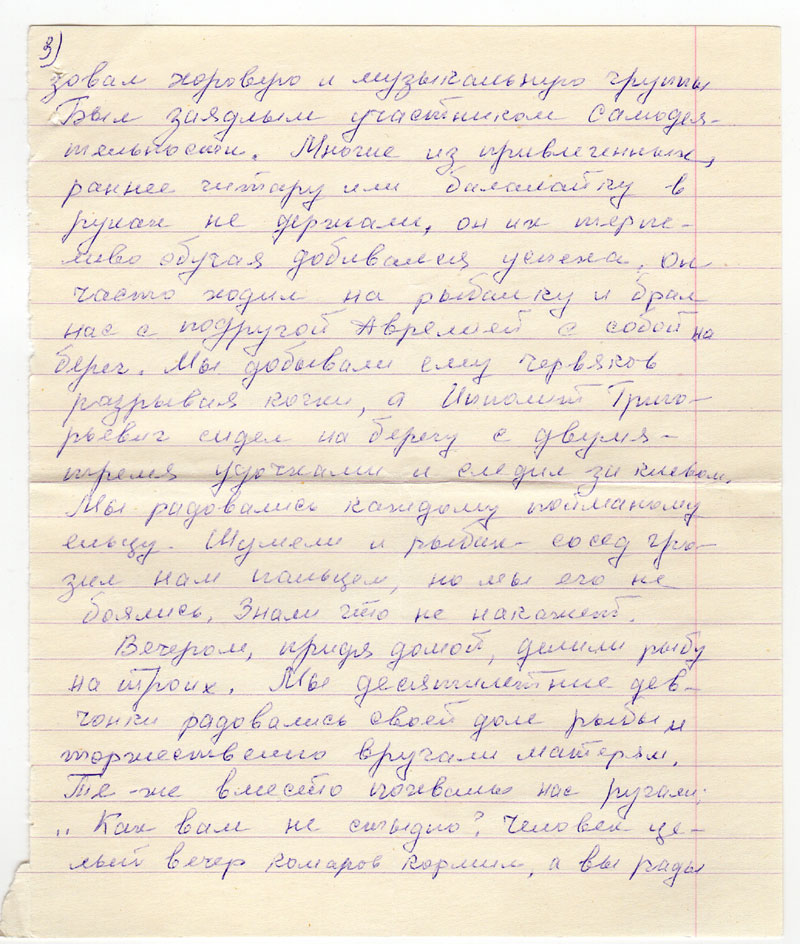 3)
зовал хоровую и музыкальную группы
Был заядлым участником самодея-
тельности. Многие из привлеченных,
раннее гитару или балалайку в
руках не держали, он их терпе-
ливо обучая добивался успеха. Он
часто ходил на рыбалку и брал
нас с подругой Аврелией с собой на
берег. Мы добывали ему червяков
разрывая кочки, а Иполит Григо-
рьевич сидел на берегу с двумя-
тремя удочками и следил за клевом.
Мы радовались каждому пойманому
ельцу. Шумели и рыбак-сосед гро-
зил нам пальцем, но мы его не
боялись. Знали что не накажет.
Вечером, придя домой, делили рыбу
на троих. Мы десятилетние дев-
чонки радовались своей доле рыбы и
торжественно вручали матерям.
Те-же вместо похвалы нас ругали:
„Как вам не стыдно? Человек це-
лый вечер комаров кормил, а вы рады